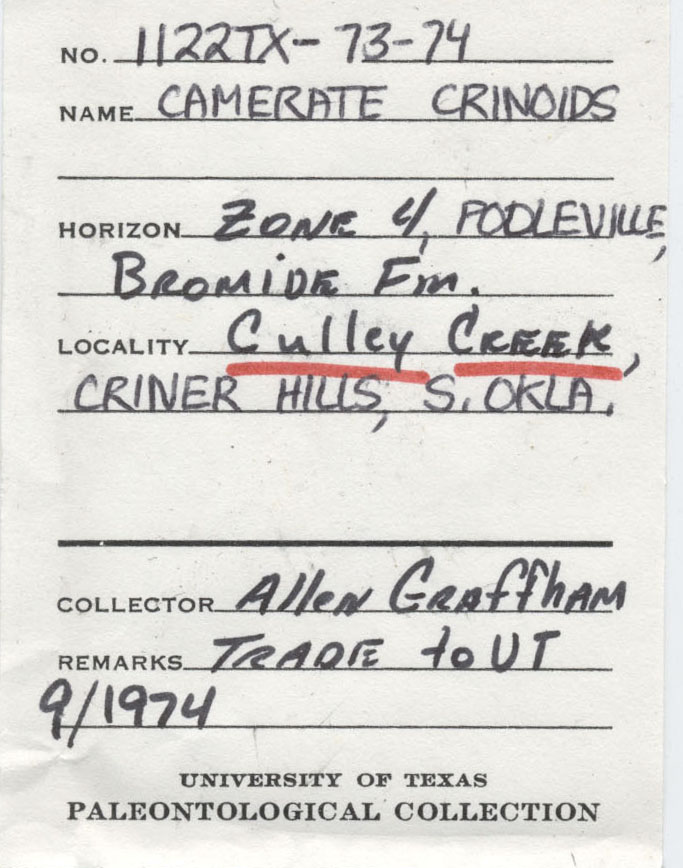 NO. 1122TX-73-74
NAME CAMERATE CRINOIDS
HORIZON ZONE 4, POOLEVILLE,
BROMIDE Fm.
LOCALITY Culley CREEK,
CRINER HILLS, S. OKLA.
COLLECTOR Allen GRAffHAM
REMARKS TRADE to UT
9/1974
UNIVERSITY OF TEXAS
PALEONTOLOGICAL COLLECTION